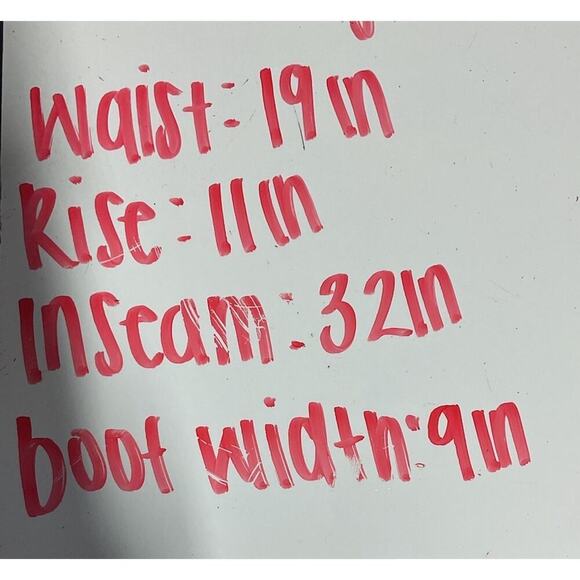 Waist: 19in
Rise: 11in
Inseam: 32in
boot width: 9in